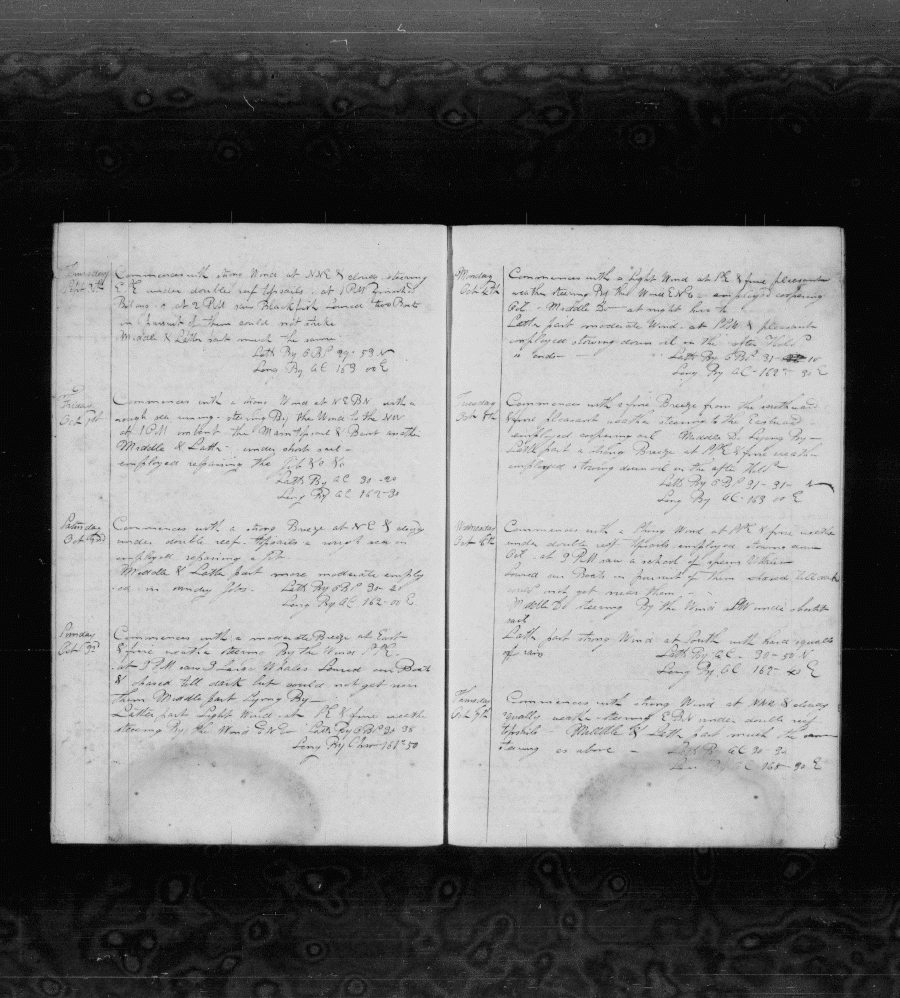 Thursday Commences with strong Wind at NNE & cloudy steering
Sept 30th E by under double reef topsails. at 1 PM finished
Boiling. at 2 PM saw Blackfish Lowered two Boats
in pursuit of them could not strike
Middle & Latter part much the same
Latt By OBS 29-53 N
Long By AC 163 00 E
Friday Commences with a strong Wind at NEBN with a
Oct 1st rough sea running. steering By the Wind to the NW
at 1 PM the Main topsail & Bent another
Middle & Latter under short sail
employed repairing the Jib
Latt By AC 30-20
Long By AC 162-30
Saturday Commences with a strong Breeze at NE & cloudy
Oct 2nd under double reef topsails a rough sea on
employed repairing a Jib
Middle & Latter part more moderate employ
ed in sundry Jobs. Latt By OBS 30-20
Long By AC 162-00 E
Sunday Commences with a moderate Breeze at East
Oct 3rd & fine weather steering By the Wind
at 5 PM saw Large Whales Lowered our Boats
& chased till dark but could not get near
them Middle part Lying By
Latter part Light Wind at & fine weather
steering By the Wind ENE Latt By OBS 30 38
Long By Chro 161° 50
Monday Commences with a Light Wind at & fine pleasant
Oct 4th weather steering By the Wind ENE employed coopering
Oil. Middle Do at night
Latter part moderate Wind at & pleasant
employed stowing down oil in the after Hold
so ends Latt By OBS 31- 10
Long By AC- 162- 30 E
Tuesday Commences with a fine Breeze from the southward
Oct 5th & fine pleasant weather steering to the Eastward
employed coopering oil Middle D. Lying By
Latter part a strong Breeze at & fine weather
employed stowing down oil in the after Hold
Latt By OBS 31-31- N
Long By AC- 163 00 E
Wednesday Commences with a Strong Wind at & fine weather
Oct 6th under double reef topsails employed stowing down
Oil. at 3 PM saw a school of sperm Whales
Lowered our Boats in pursuit of them chased till dark
could not get near them
Middle Do steering By the Wind SW under shortest
sail
Latter part strong Wind at South with hard squalls
of rain Latt By AC- 30-50 N
Long By AC 165- E
Thursday Commences with strong Wind at NNE & cloudy
Oct 7th squally weather steering EBN under double reef
topsails Middle & Latt part much the same
steering as above Latt By AC 30-30
Long By AC 165-30 E